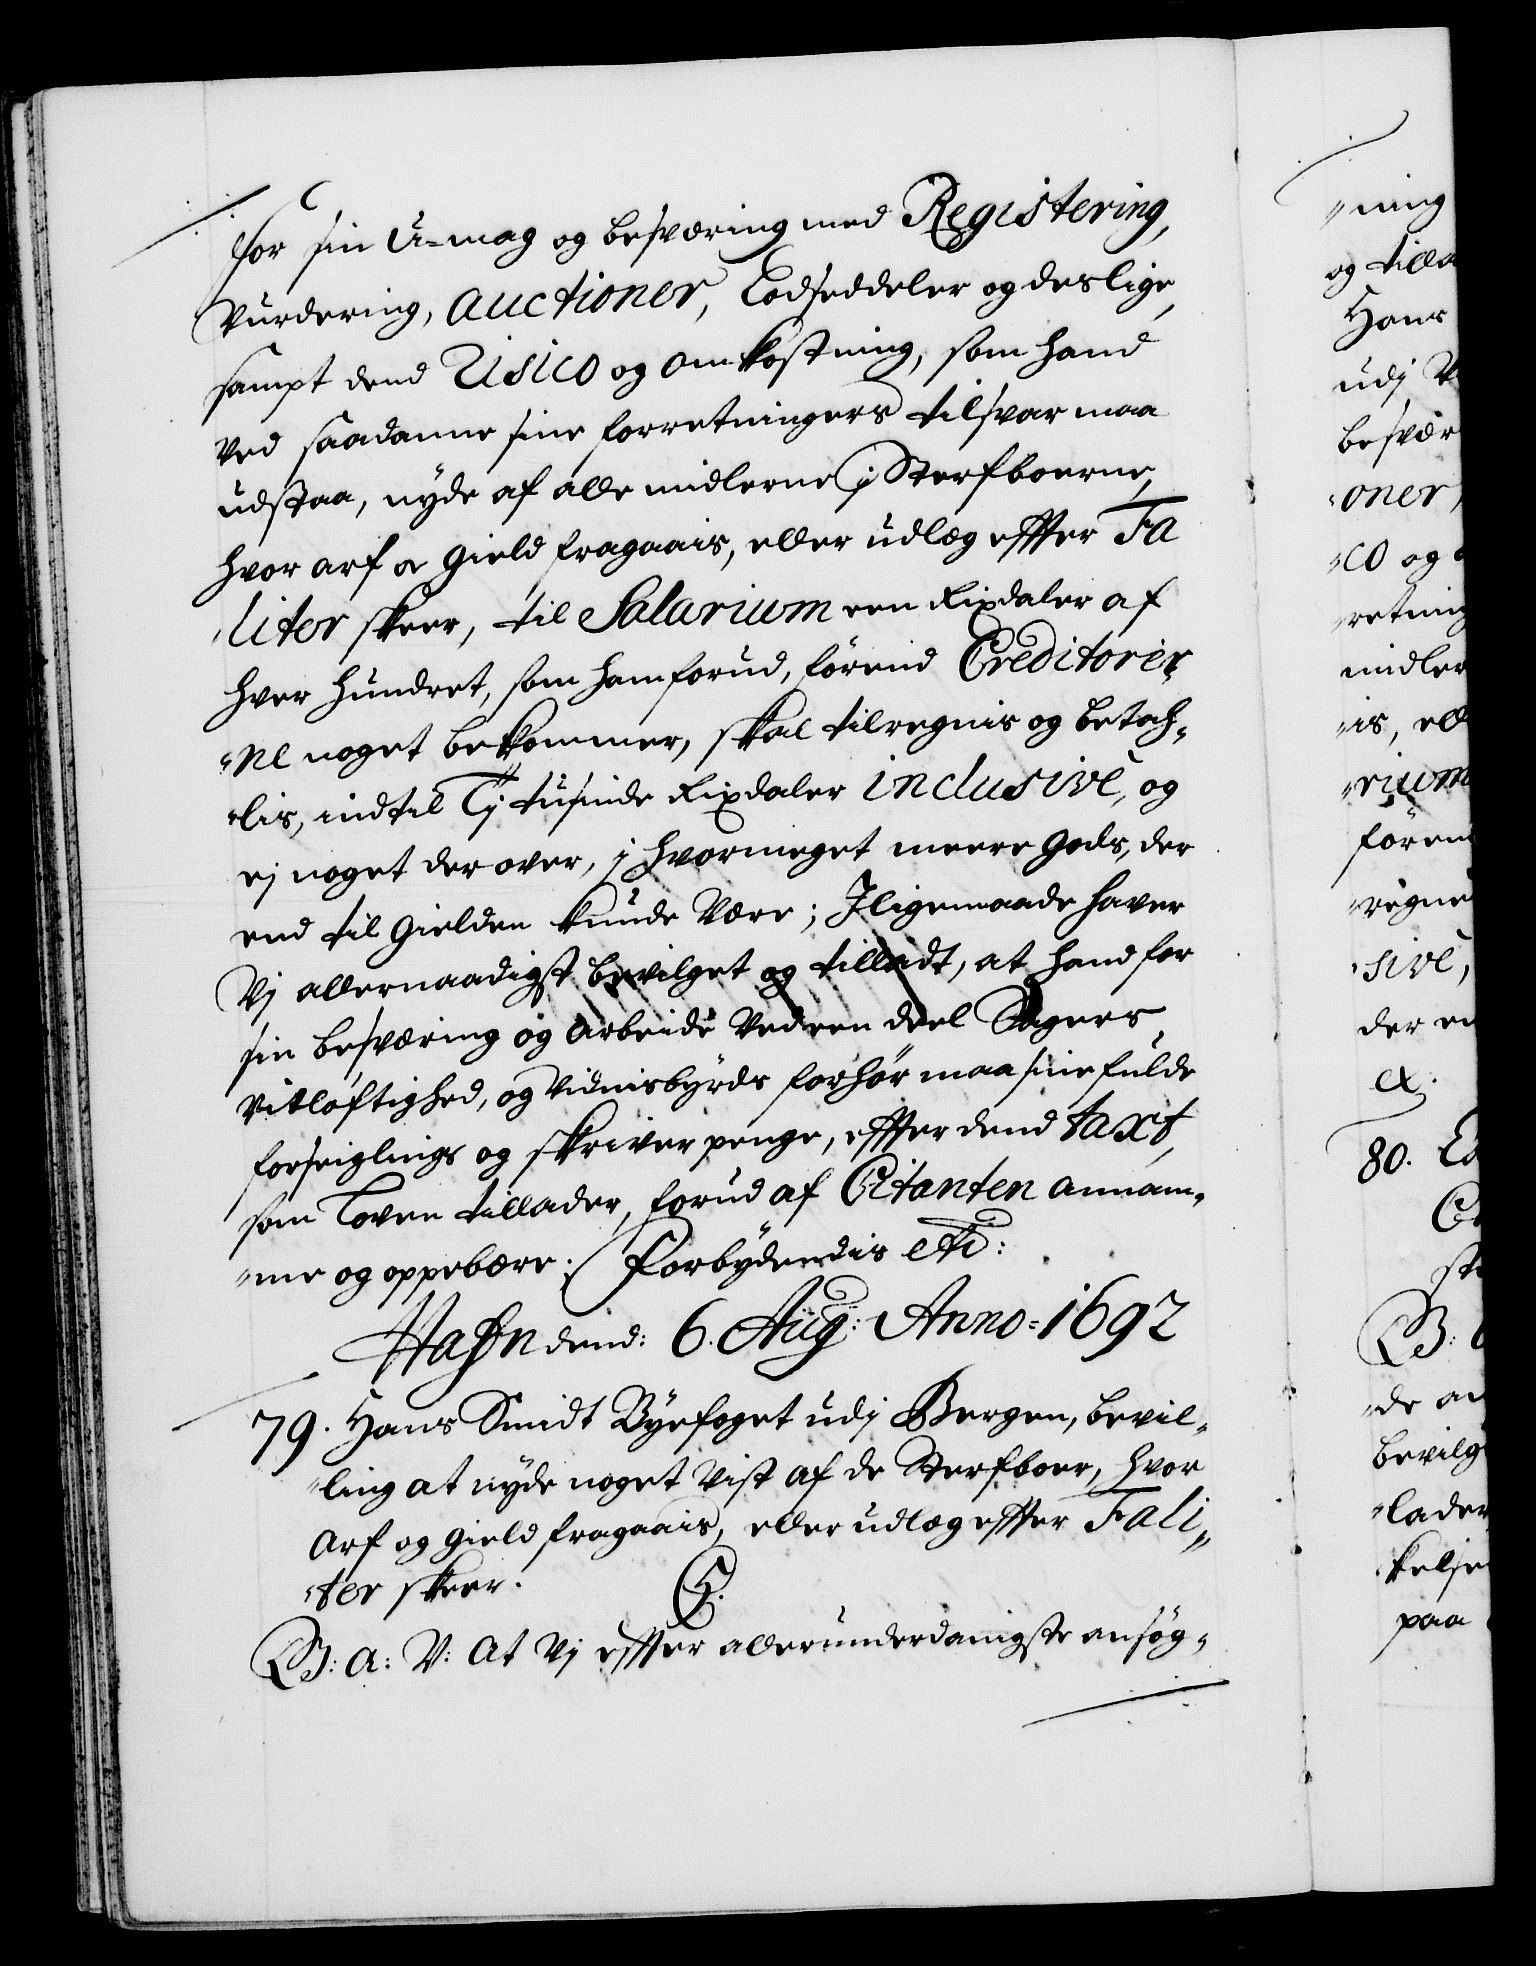 for sin U-mag og besværing med Registering,
Vurdering, Auctioner, Lodseddeler og deslige,
sampt dend Risico og omkostning, som hand
ved saadanne sine forretningers tilsvar maa
udstaa, nyde af alle midlerne j Sterfboerne,
hvor arf & gield fragaais, eller udlæg effter Fa
"liter skeer, til Salarium een Rixdaler af
hver hundret, som ham forud, förend Creditorer,,
"ne noget bekommer, skal tilregnis og betah,,
"lis, indtil Tj tusinde Rixdaler inclusivè, og
ej noget der over, j hvormeget meere gods, der
end til gielden kunde være; Jligemaade haver
Vj allernaadigst bevilget og tilladt, at hand for
sin besværing og arbeide ved een deel Sagers
vitløftighed, og vidnisbyrds forhør maa sine fulde
forseiglings og skriver penge, effter dend taxt,
som Loven tillader, forud af Citanten annam,,
"me og oppebære. Forbydendis etc:
Hafn dend: 6. Aug: Anno=1692
79. Hans Smidt Byefoget udj Bergen, bevil,,
"ling at nyde noget vist af de Sterfboer, hvor
Arf og gield fragaais, eller udlæg effter Fali,,
"ter skeer. G.
G: A: V: At Vj effter allerunderdanigste ansøg,,
"ning
og tilla
Hans
udj
besvær
"oner,
"co og
"retning
midler
"is, ell
"rium
förend
"regne
"sivè,
der en
&.
80.
"de an
bevilg
"lader
"kelse
paa